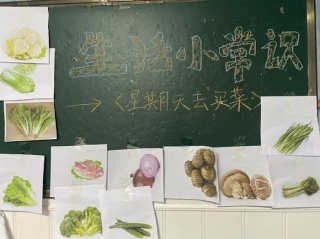 生活小常识
→〈星期天去买菜〉